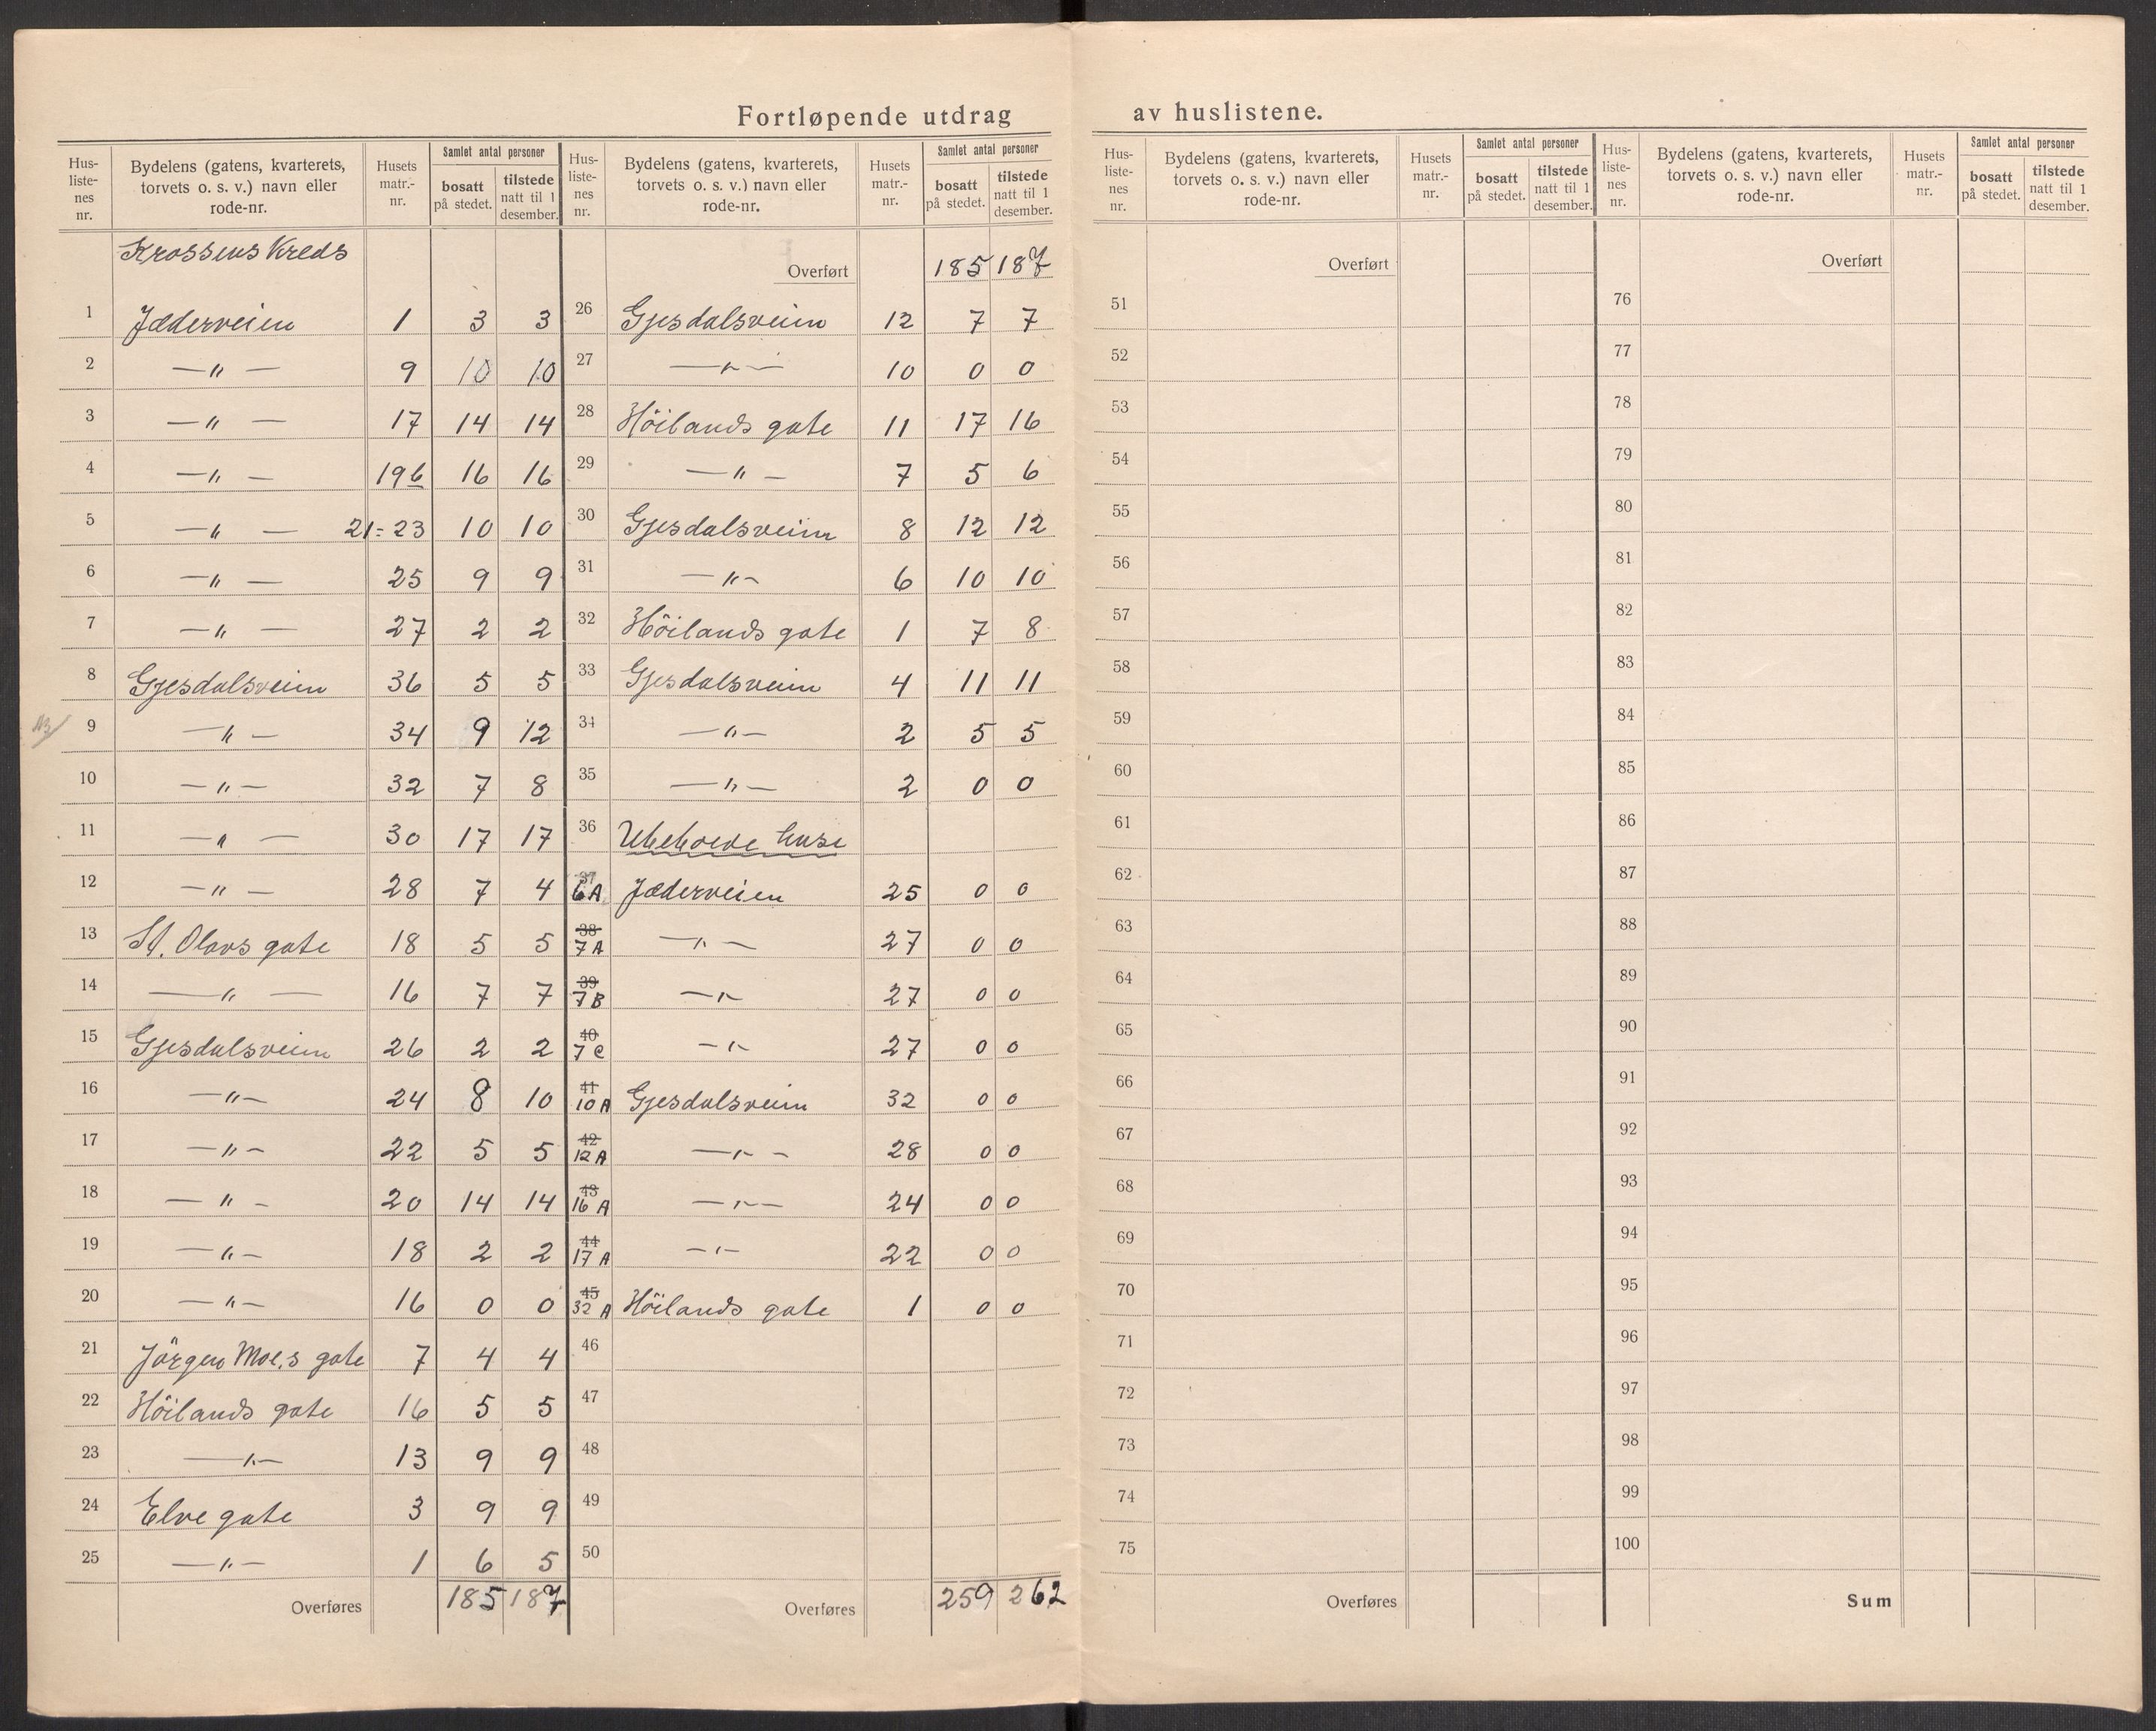 Fortløpende utdrag av huslistene.
Hus-liste-nes nr. | Bydelens (gatens, kvarterets, torvets o. s. v.) navn eller rode-nr. | Husets matr.-nr. | Samlet antal personer | bosatt på stedet. | tilstede natt til 1 desember.
Krossens Kreds
1 Jæderveien 1 3 3
2 —"— 9 10 10
3 —"— 17 14 14
4 —"— 19b 16 16
5 —"— 21-23 10 10
6 —"— 25 9 9
7 —"— 27 2 2
8 Gjesdalsveien 36 5 5
9 —"— 34 9 12
10 —"— 32 7 8
11 —"— 30 17 17
12 —"— 28 7 4
13 St. Olavs gate 18 5 5
14 —"— 16 7 7
15 Gjesdalsveien 26 2 2
16 —"— 24 8 10
17 —"— 22 5 5
18 —"— 20 14 14
19 —"— 18 2 2
20 —"— 16 0 0
21 Jörgen Moe,s gate 7 4 4
22 Höilands gate 16 5 5
23 —"— 13 9 9
24 Elve gate 3 9 9
25 —"— 1 6 5
Overføres 185 187
Hus-liste-nes nr. | Bydelens (gatens, kvarterets, torvets o. s. v.) navn eller rode-nr. | Husets matr.-nr. | Samlet antal personer | bosatt på stedet. | tilstede natt til 1 desember.
Overført 185 187
26 Gjesdalsveien 12 7 7
27 —"— 10 0 0
28 Höilands gate 11 17 16
29 —"— 7 5 6
30 Gjesdalsveien 8 12 12
31 —"— 6 10 10
32 Höilands gate 1 7 8
33 Gjesdalsveien 4 11 11
34 —"— 2 5 5
35 —"— 2 0 0
36 Ubeboede huse
37 6A Jæderveien 25 0 0
38 7A —"— 27 0 0
39 7B —"— 27 0 0
40 7C —"— 27 0 0
41 10A Gjesdalsveien 32 0 0
42 12A —"— 28 0 0
43 16A —"— 24 0 0
44 17A —"— 22 0 0
45 32A Höilands gate 1 0 0
46
47
48
49
50
Overføres 259 262
Hus-liste-nes nr. | Bydelens (gatens, kvarterets, torvets o. s. v.) navn eller rode-nr. | Husets matr.-nr. | Samlet antal personer | bosatt på stedet. | tilstede natt til 1 desember.
Overført
51
52
53
54
55
56
57
58
59
60
61
62
63
64
65
66
67
68
69
70
71
72
73
74
75
Overføres
Hus-liste-nes nr. | Bydelens (gatens, kvarterets, torvets o. s. v.) navn eller rode-nr. | Husets matr.-nr. | Samlet antal personer | bosatt på stedet. | tilstede natt til 1 desember.
Overført
76
77
78
79
80
81
82
83
84
85
86
87
88
89
90
91
92
93
94
95
96
97
98
99
100
Sum